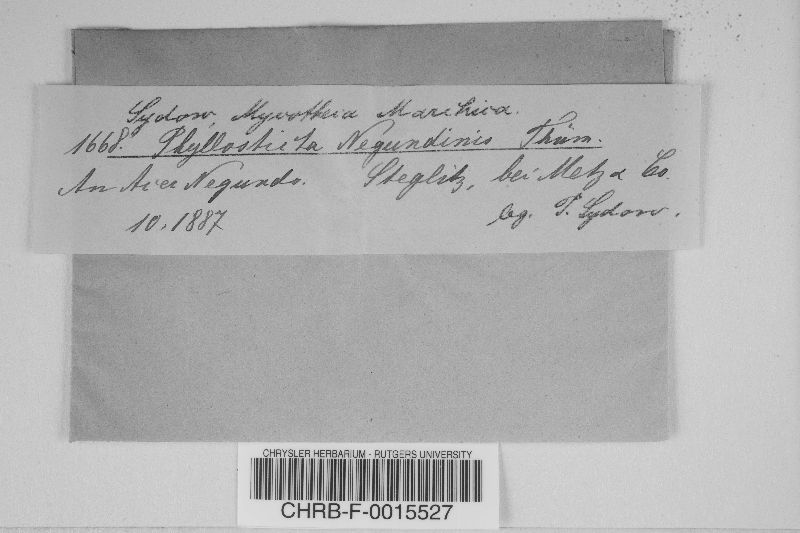 Sydow, Mycotheca Marchica.
1668. Phyllosticta Negundinis Thüm.
An Acer Negundo. Steglitz, bei Metz & Co.
10. 1887 leg. P. Sydow.
CHRYSLER HERBARIUM - RUTGERS UNIVERSITY
CHRB-F-0015527